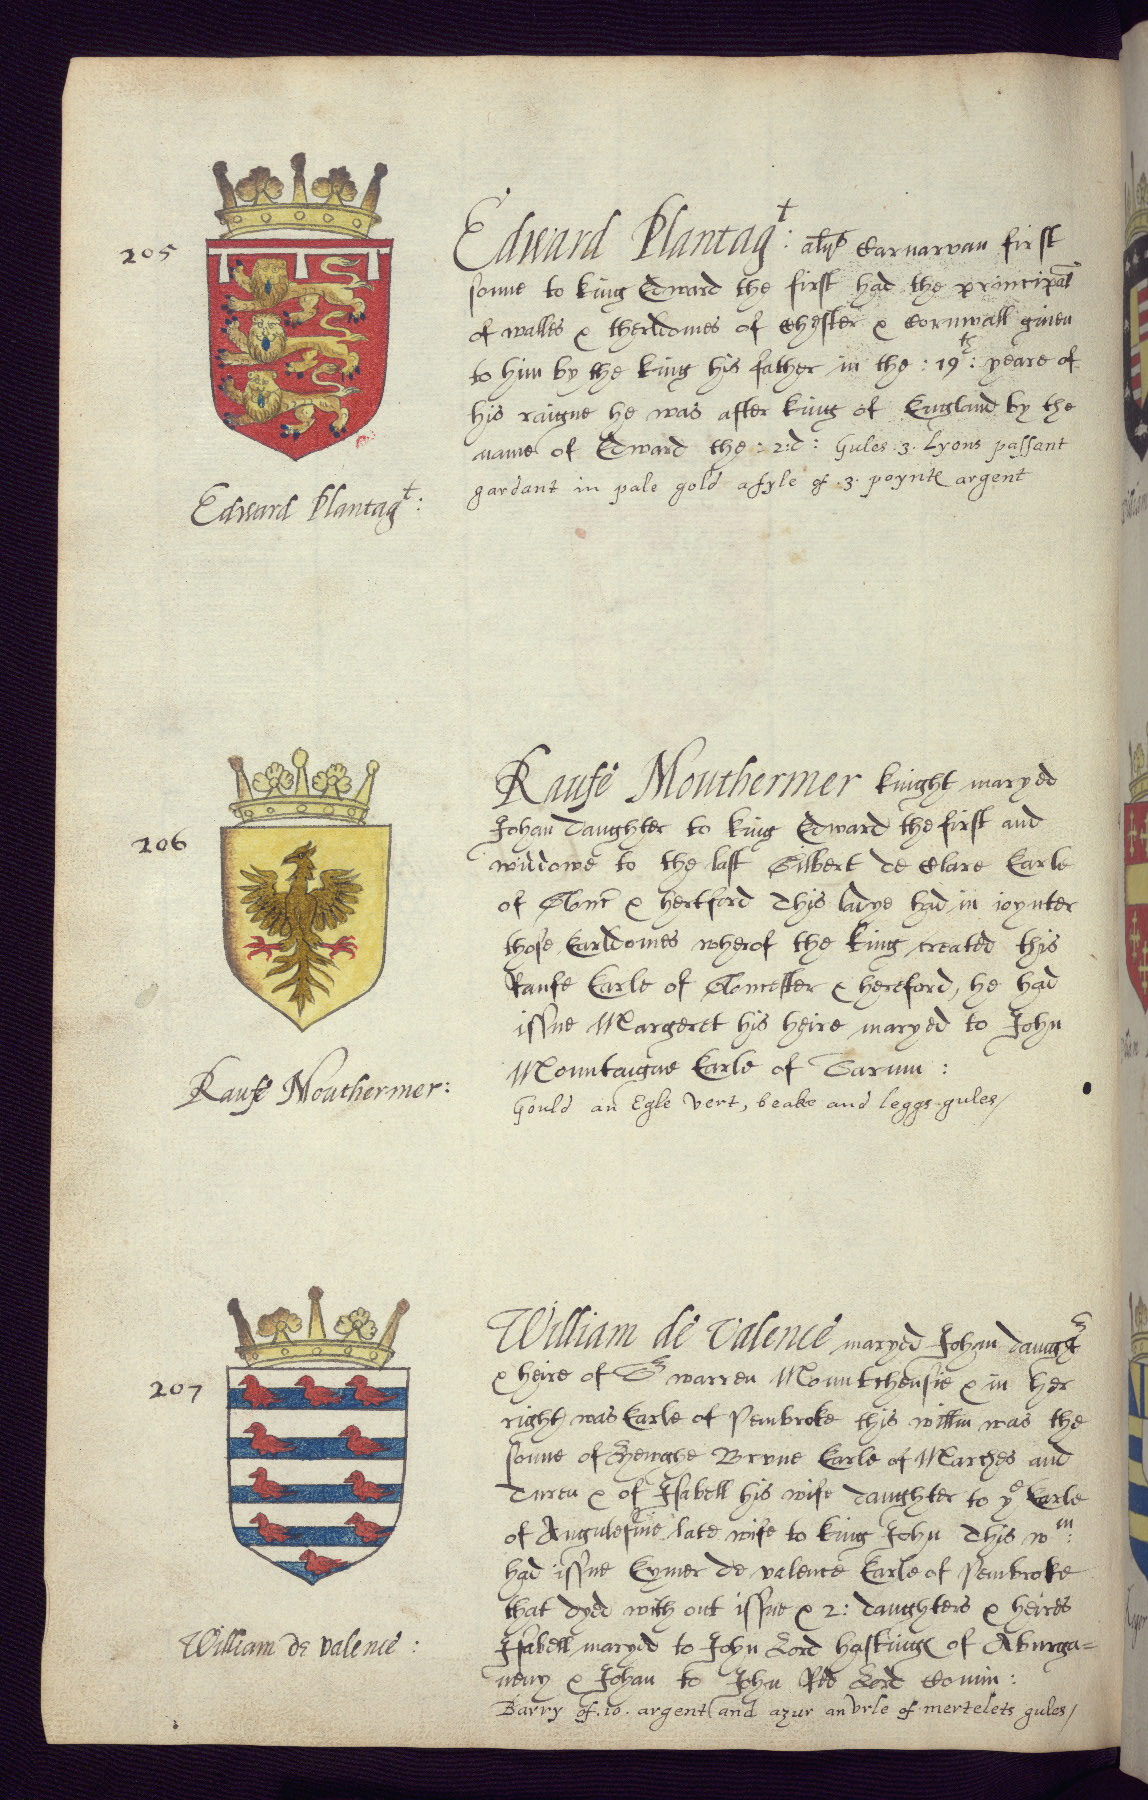 205
Edward Plantagt: als Carnarvan first
sonne to king Edward the first had the principat
of walles & therldomes of Chester & Cornwall given
to him by the king his father in the : 19th : yeare of
his raigne he was after king of England by the
name of Edward the : 2:d : Gules .3. Lyons passant
gardant in pale gold a fyle of .3. poynte argent
Edward Plantagt :
206
Raufe Mouthermer knight maryed
Johan daughter to king Edward the first and
widdowe to the last Gilbert de Clare Earle
of Glouc & hertford This ladye had in ioynter
those Earldomes wherof the king created this
Raufe Earle of Gloncester & hereford, he had
issue Margeret his heire maryed to John
Mountaigue Earle of Sarum :
Gould an Egle vert, beake and leggs gules/
Raufe Mouthermer :
207
William de Valence maryed Johan daught
& heire of Sr warren Mountchensie & in her
right was Earle of Pembroke this willm was the
sonne of Hewghe Brune Earle of Marches and
Turen & of Isabell his wife daughter to ye Earle
of Angulesme late wife to king John This wm:
had issue Eymer de valence Earle of Pembroke
that dyed with out issue & 2: daughters & heires
Isabell maryed to John Lord hastinge of Aburga=
veny & Johan to John Red Lord Comin :
Barry of .10. argent and azur an vrle of mertelets gules/
William de valence :